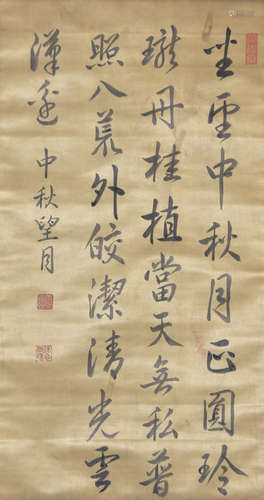 坐中秋月正圓玲
瓏丹桂植當天無私普
照八荒外皎潔清光雲
漢邊 中秋望月